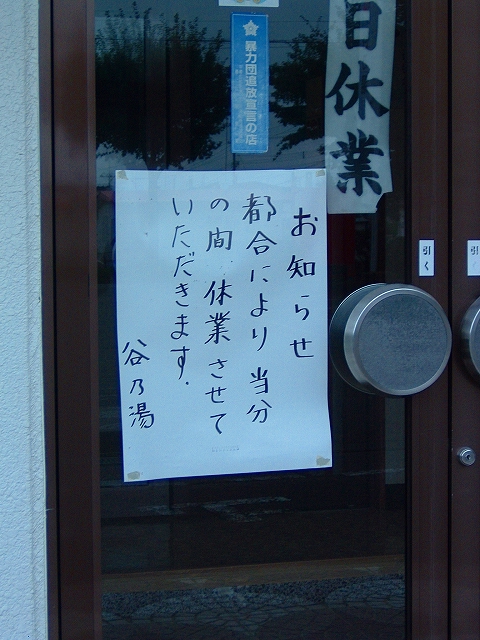 日休業
暴力団追放宣言の店
お知らせ
都合により当分
の間 休業させて
いただきます.
谷乃湯
引く
引